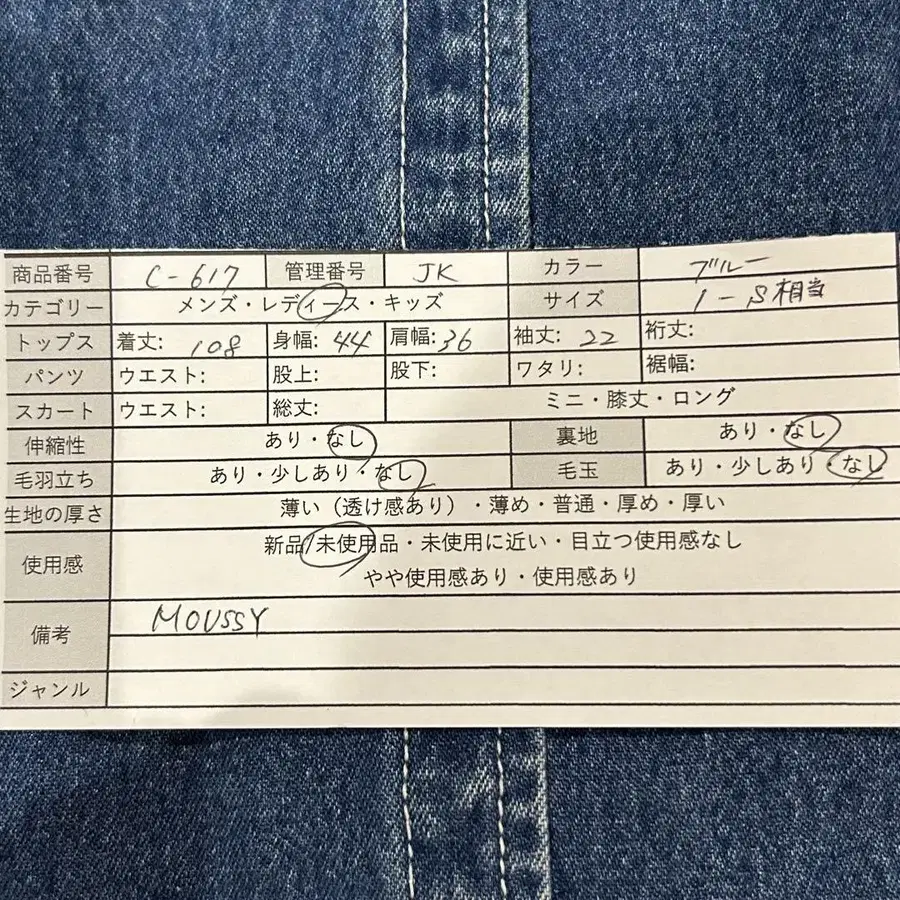 商品番号 C-617 管理番号 JK カラー ブルー
カテゴリー メンズ・レディース・キッズ サイズ 1-S相当
トップス 着丈: 108 身幅: 44 肩幅: 36 袖丈: 22 裄丈:
パンツ ウエスト: 股上: 股下: ワタリ: 裾幅:
スカート ウエスト: 総丈: ミニ・膝丈・ロング
伸縮性 あり・なし 裏地 あり・なし
毛羽立ち あり・少しあり・なし 毛玉 あり・少しあり・なし
生地の厚さ 薄い（透け感あり）・薄め・普通・厚め・厚い
使用感 新品/未使用品・未使用に近い・目立つ使用感なし
やや使用感あり・使用感あり
備考 MOUSSY
ジャンル